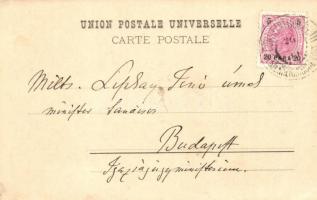 UNION POSTALE UNIVERSELLE
CARTE POSTALE
20 PARA 20
Mélts. Lipthay Jenő úrnak
miniszter tanácsos
Budapest
Igazságügyministerium.